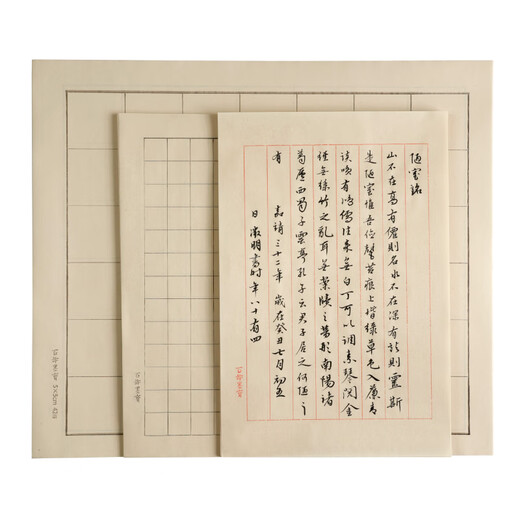 陋室銘
山不在高有僊則名水不在深有龍則靈斯
是陋室惟吾德馨苔痕上堦綠草色入簾青
談笑有鴻儒往来無白丁可以調素琴閱金
經無絲竹之亂耳無案牘之勞形南陽諸
葛廬西蜀子雲亭孔子云君子居之何陋之
有 嘉靖三十二年歲在癸丑七月初五
日徵明書時年八十有四